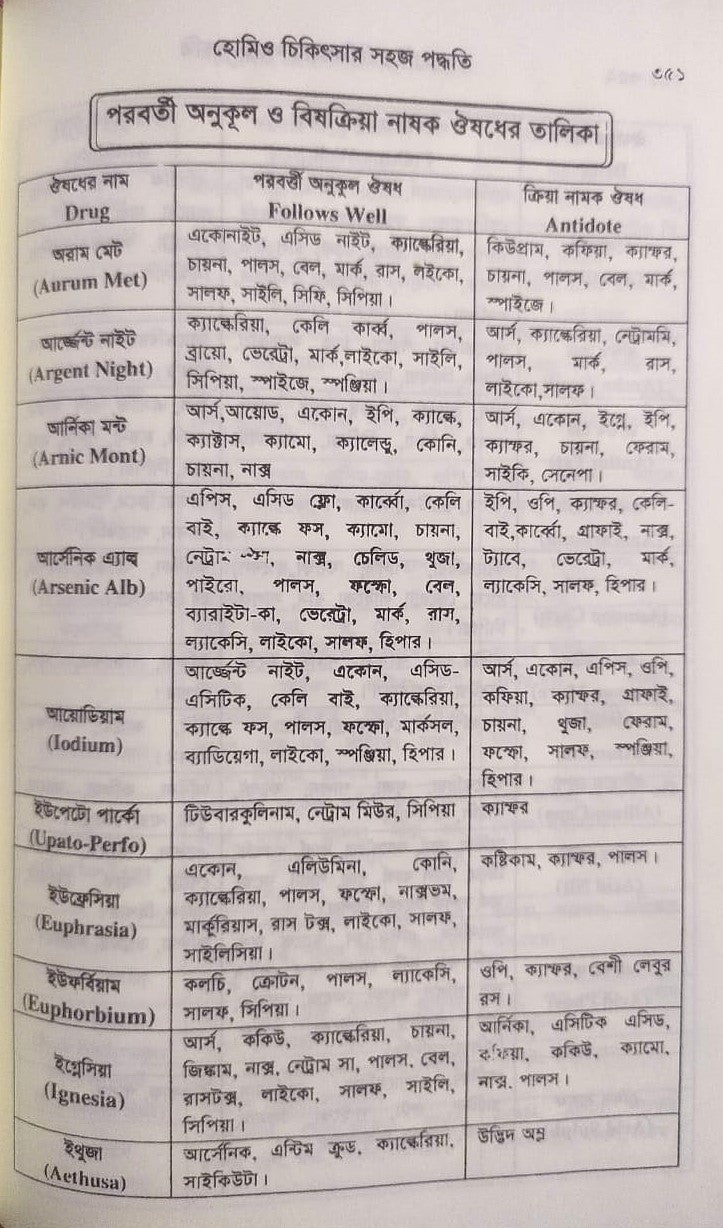 হোমিও চিকিৎসার সহজ পদ্ধতি
৩৫১
পরবর্তী অনুকূল ও বিষক্রিয়া নাষক ঔষধের তালিকা
ঔষধের নাম
Drug
পরবর্তী অনুকূল ঔষধ
Follows Well
ক্রিয়া নামক ঔষধ
Antidote
অরাম মেট
(Aurum Met)
একোনাইট, এসিড নাইট, ক্যাল্কেরিয়া,
চায়না, পালস, বেল, মার্ক, রাস, লইকো,
সালফ, সাইলি, সিফি, সিপিয়া।
কিউপ্রাম, কফিয়া, ক্যাম্ফর,
চায়না, পালস, বেল, মার্ক,
স্পাইজে।
আর্জ্জেন্ট নাইট
(Argent Night)
ক্যাল্কেরিয়া, কেলি কার্ব্ব, পালস,
ব্রায়ো, ভেরেট্রা, মার্ক,লাইকো, সাইলি,
সিপিয়া, স্পাইজে, স্পঞ্জিয়া।
আর্স, ক্যাল্কেরিয়া, নেট্রামমি,
পালস, মার্ক, রাস,
লাইকো,সালফ।
আর্নিকা মন্ট
(Arnic Mont)
আর্স,আয়োড, একোন, ইপি, ক্যাল্কে,
ক্যাক্টাস, ক্যামো, ক্যালেন্ডু, কোনি,
চায়না, নাক্স
আর্স, একোন, ইগ্নে, ইপি,
ক্যাম্ফর, চায়না, ফেরাম,
সাইকি, সেনেগা।
আর্সেনিক এ্যাল্ব
(Arsenic Alb)
এপিস, এসিড ফ্লো, কার্ব্বো, কেলি
বাই, ক্যাল্কে ফস, ক্যামো, চায়না,
নেট্রাম নাক্স, চেলিড, থুজা,
পাইরো, পালস, ফস্ফো, বেল,
ব্যারাইটা-কা, ভেরেট্রা, মার্ক, রাস,
ল্যাকেসি, লাইকো, সালফ, হিপার।
ইপি, ওপি, ক্যাম্ফর, কেলি-
বাই,কার্ব্বো, গ্রাফাই, নাক্স,
ট্যাবে, ভেরেট্রা, মার্ক,
ল্যাকেসি, সালফ, হিপার।
আয়োডিয়াম
(Iodium)
আর্জ্জেন্ট নাইট, একোন, এসিড-
এসিটিক, কেলি বাই, ক্যাল্কেরিয়া,
ক্যাল্কে ফস, পালস, ফস্ফো, মার্কসল,
ব্যাডিয়েগা, লাইকো, স্পঞ্জিয়া, হিপার।
আর্স, একোন, এপিস, ওপি,
কফিয়া, ক্যাম্ফর, গ্রাফাই,
চায়না, থুজা, ফেরাম,
ফস্ফো, সালফ, স্পঞ্জিয়া,
হিপার।
ইউপেটো পার্ফো
(Upato-Perfo)
টিউবারকুলিনাম, নেট্রাম মিউর, সিপিয়া
ক্যাম্ফর
ইউফ্রেসিয়া
(Euphrasia)
একোন, এলিউমিনা, কোনি,
ক্যাল্কেরিয়া, পালস, ফস্ফো, নাক্সভম,
মার্কুরিয়াস, রাস টক্স, লাইকো, সালফ,
সাইলিসিয়া।
কষ্টিকাম, ক্যাম্ফর, পালস।
ইউফর্বিয়াম
(Euphorbium)
কলচি, ক্রোটন, পালস, ল্যাকেসি,
সালফ, সিপিয়া।
ওপি, ক্যাম্ফর, বেশী লেবুর
রস।
ইগ্নেসিয়া
(Ignesia)
আর্স, ককিউ, ক্যাল্কেরিয়া, চায়না,
জিঙ্কাম, নাক্স, নেট্রাম সা, পালস, বেল,
রাসটক্স, লাইকো, সালফ, সাইলি,
সিপিয়া।
আর্নিকা, এসিটিক এসিড,
কফিয়া, ককিউ, ক্যামো,
নাক্স. পালস।
ইথুজা
(Aethusa)
আর্সেনিক, এন্টিম ক্রুড, ক্যাল্কেরিয়া,
সাইকিউটা।
উদ্ভিদ অম্ল